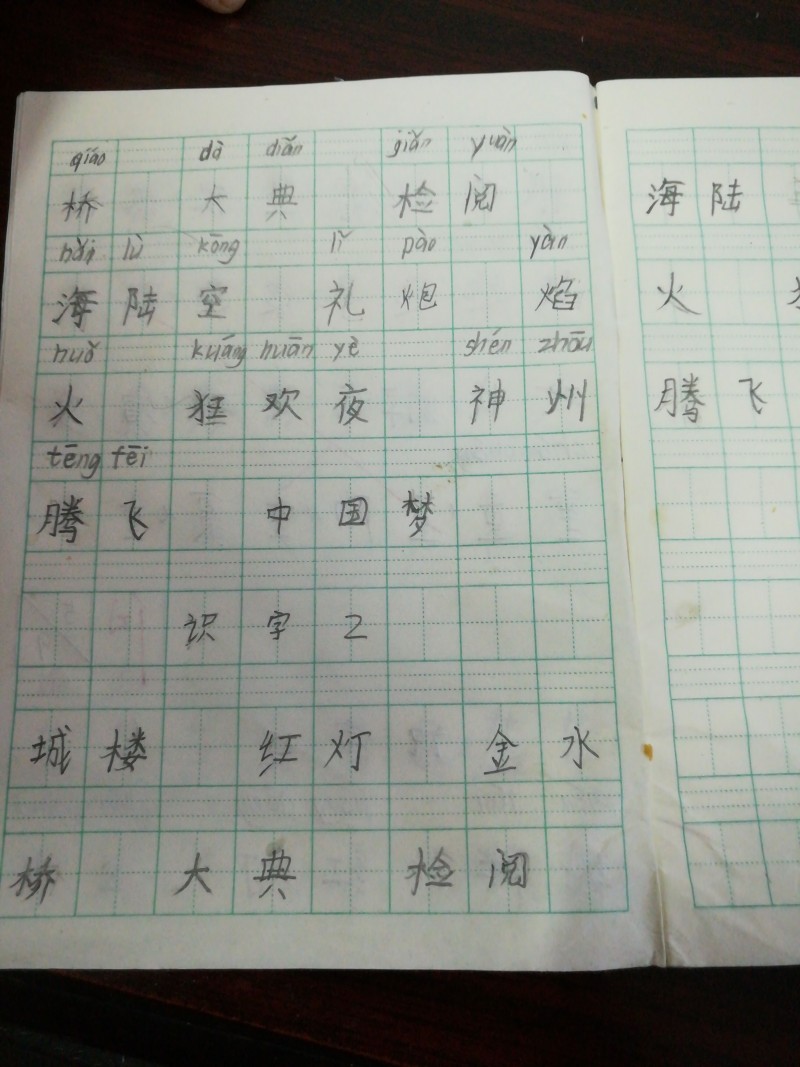 qiáo dà diǎn jiǎn yuàn
桥 大 典 检 阅
hǎi lù kōng lǐ pào yàn
海 陆 空 礼 炮 焰
huǒ kuáng huān yè shén zhōu
火 狂 欢 夜 神 州
tēng fēi
腾 飞 中 国 梦
识 字 2
城 楼 红 灯 金 水
桥 大 典 检 阅
海 陆
火
腾 飞